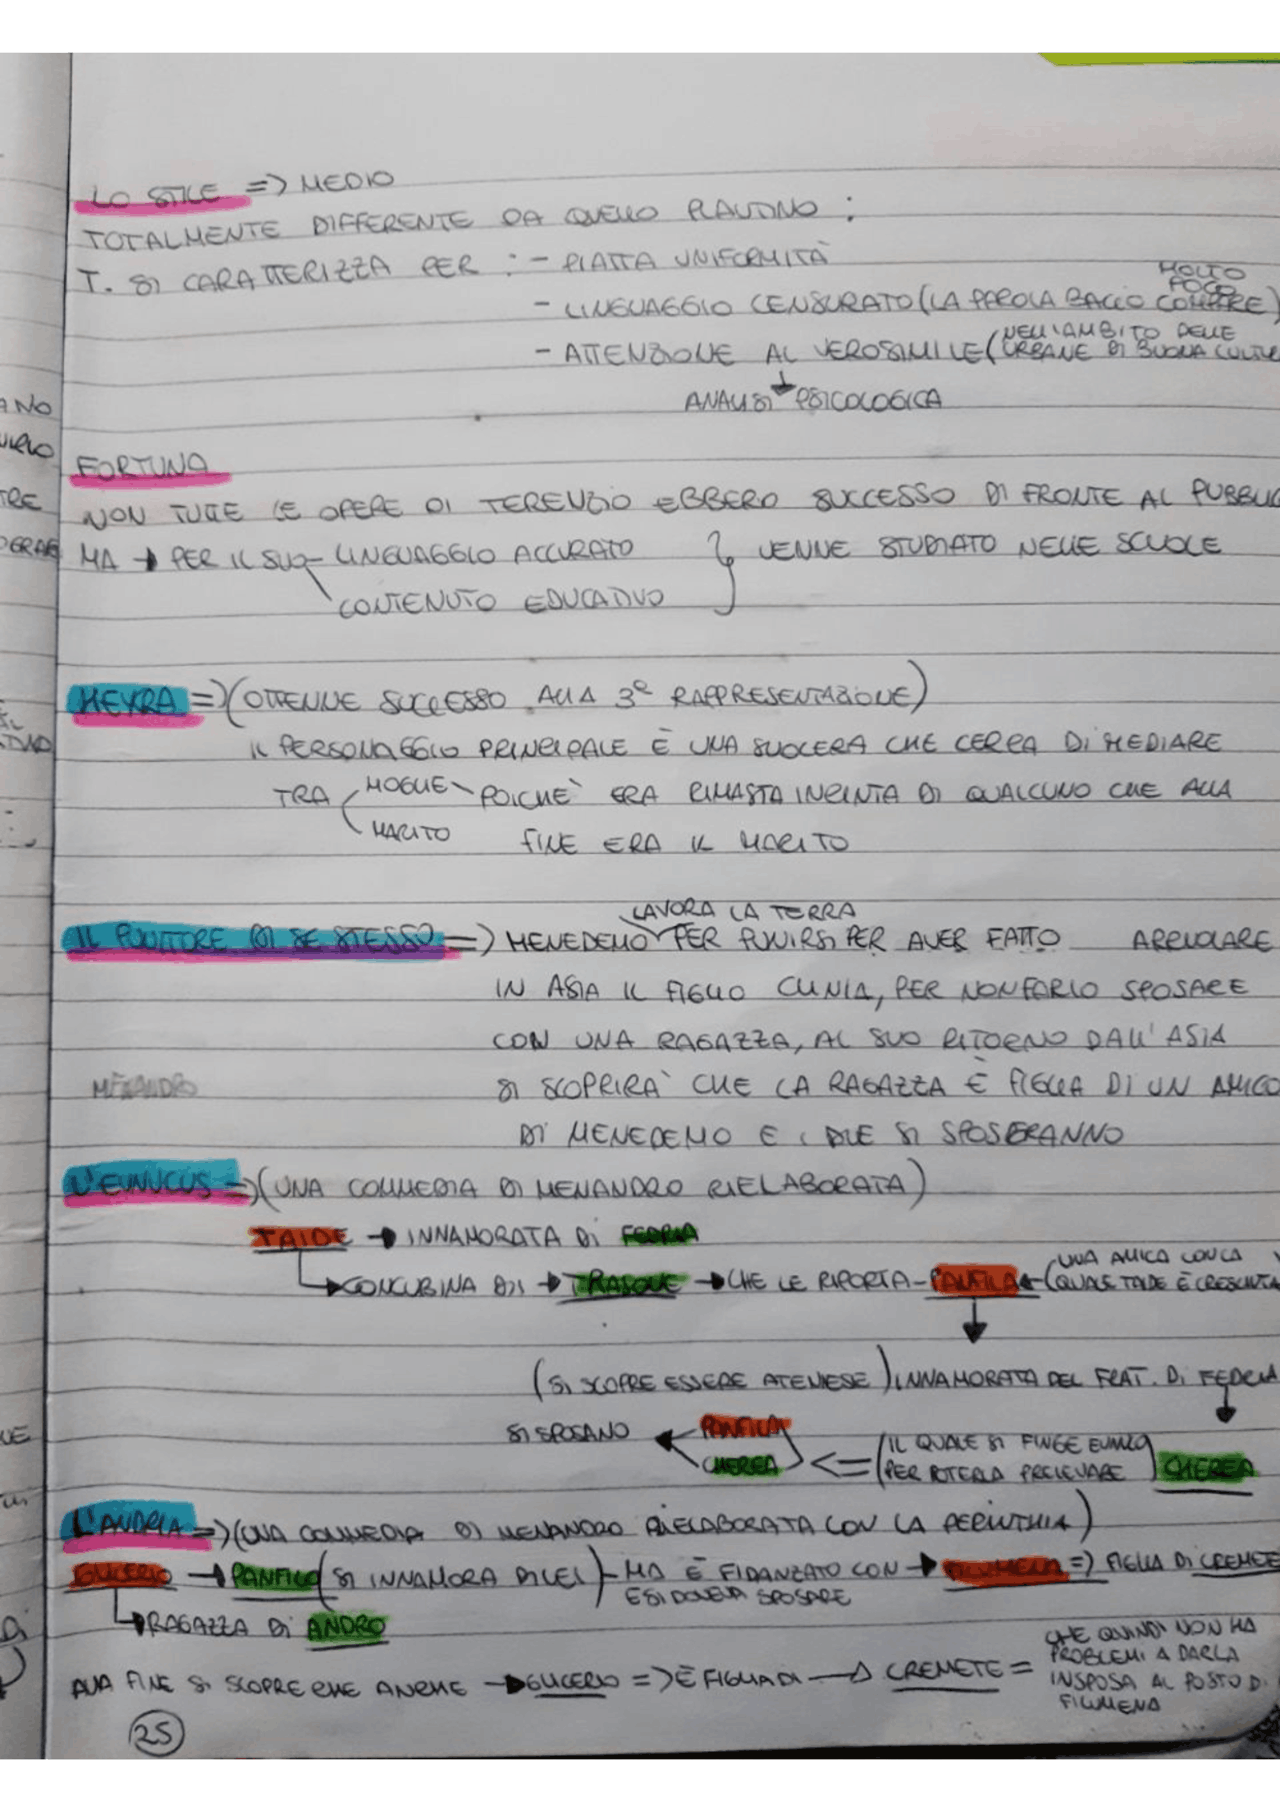 LO STILE => MEDIO
TOTALMENTE DIFFERENTE DA QUELLO PLAUTINO :
T. SI CARATTERIZZA PER : - PIATTA UNIFORMITÀ
- LINGUAGGIO CENSURATO (LA PAROLA BACIO COMPARE MOLTO POCO)
- ATTENZIONE AL VEROSIMILE (NELL'AMBITO DELLE URBANE DI BUONA CULTU
ANALISI PSICOLOGICA
FORTUNA
NON TUTTE LE OPERE DI TERENZIO EBBERO SUCCESSO DI FRONTE AL PUBBLIC
MA → PER IL SUO - LINGUAGGIO ACCURATO } VENNE STUDIATO NELLE SCUOLE
CONTENUTO EDUCATIVO
HEYRA => (OTTENNE SUCCESSO ALLA 3ª RAPPRESENTAZIONE)
IL PERSONAGGIO PRINCIPALE È UNA SUOCERA CHE CERCA DI MEDIARE
TRA MOGLIE POICHÈ ERA RIMASTA INCINTA DI QUALCUNO CHE ALLA
MARITO FINE ERA IL MARITO
LAVORA LA TERRA
IL PUNITORE DI SE STESSO => MENEDEMO PER PUNIRSI PER AVER FATTO ARRUOLARE
IN ASIA IL FIGLIO CLINIA, PER NON FARLO SPOSARE
CON UNA RAGAZZA, AL SUO RITORNO DALL'ASIA
SI SCOPRIRÀ CHE LA RAGAZZA È FIGLIA DI UN AMICO
DI MENEDEMO E I DUE SI SPOSERANNO
L'EUNUCUS => (UNA COMMEDIA DI MENANDRO RIELABORATA)
TAIDE → INNAMORATA DI FEDRIA
CONCUBINA DI → TRASONE → CHE LE RIPORTA - PANFILA ← (UNA AMICA CON LA QUALE TAIDE È CRESCIUTA
(SI SCOPRE ESSERE ATENIESE) INNAMORATA DEL FRAT. DI FEDRIA
SI SPOSANO PANFILA CHEREA <= (IL QUALE SI FINGE EUNUCO PER POTERLA PRELEVARE) CHEREA
L'ANDRIA => (UNA COMMEDIA DI MENANDRO RIELABORATA CON LA PERINTHIA)
GLICERIO → PANFILO (SI INNAMORA DI LEI) - MA È FIDANZATO CON → FILUMENA => FIGLIA DI CREMETE
E SI DOVEVA SPOSARE
RAGAZZA DI ANDRO
ALLA FINE SI SCOPRE CHE ANCHE → GLICERIO => È FIGLIA DI → CREMETE = CHE QUINDI NON HA
PROBLEMI A DARLA
IN SPOSA AL POSTO DI
FILUMENA
25